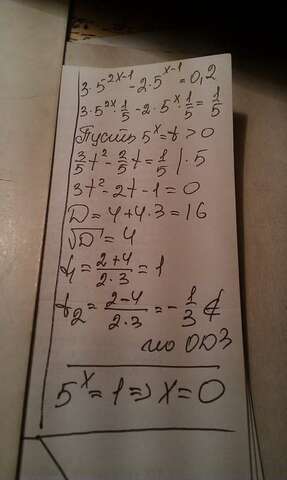 3·5^{-2x-1} - 2·5^{x-1} = 0,2
3·5^{2x}·\frac{1}{5} - 2·5^{x}·\frac{1}{5} = \frac{1}{5}
Пусть 5^x = t > 0
\frac{3}{5}t² - \frac{2}{5}t = \frac{1}{5} | · 5
3t² - 2t - 1 = 0
D = 4 + 4·3 = 16
√D = 4
t₁ = \frac{2+4}{2·3} = 1
t₂ = \frac{2-4}{2·3} = -\frac{1}{3} ∉
по ОДЗ
5^x = 1 => x = 0